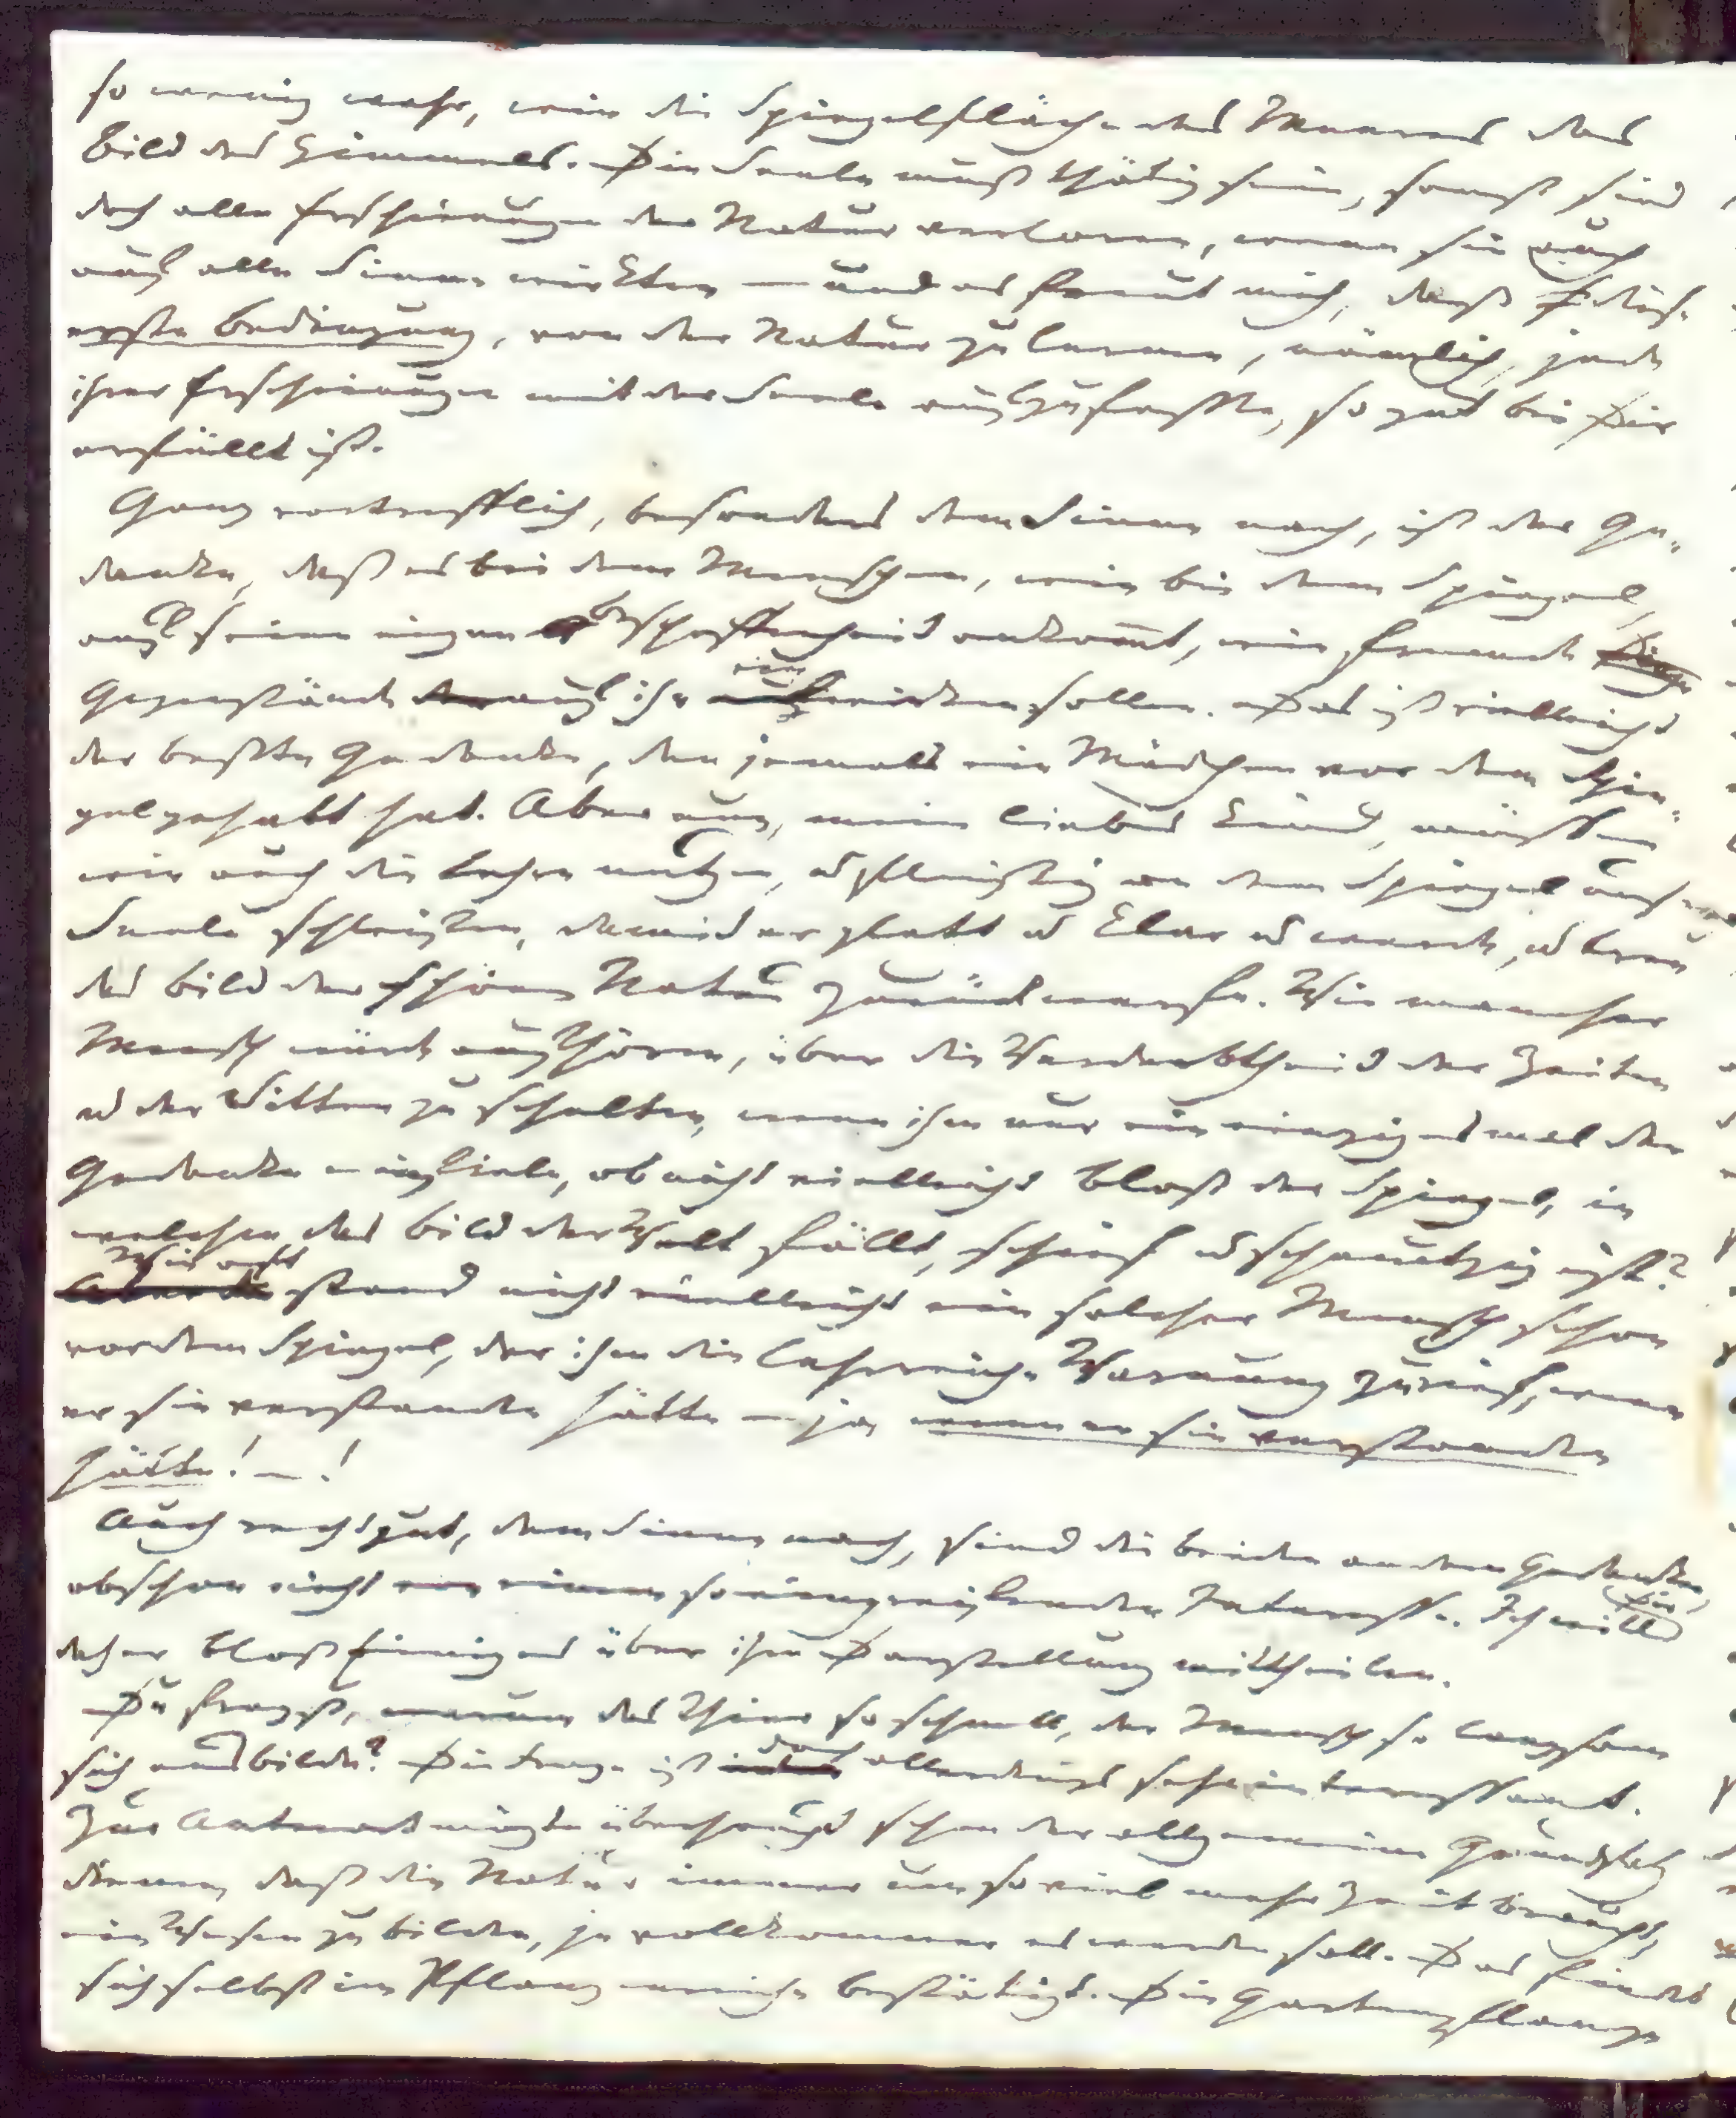 so wenig wahr, wie die Spiegelfläche des Meeres das
Bild des Himmels. Die Seele muß thätig sein, sonst sind
doch alle Erscheinungen der Natur verloren, wenn sie auch
auf alle Sinne wirkten — und es freut mich, daß diese
erste Bedingung, von der Natur zu lernen, nämlich, jede
ihrer Erscheinungen mit der Seele aufzufassen, so gut bei Dir
erfüllt ist.
Ganz vortrefflich, besonders dem Sinne nach, ist der Ge„
danke, daß es bei dem Menschen, wie bei dem Spiegel,
auf seine eigne Beschaffenheit ankom̅t, wie fremde Dinge
Gegenstände auf ihn einwirken sollen. Das ist vielleicht
der beßte Gedanke, den jemals ein Mädchen vor dem Spie„
gel gehabt hat. Aber nun, mein liebes Kind, müssen
wir auch die Lehre nutzen, u fleißig an dem Spiegel unsrer
Seele schleifen, damit er glatt u klar werde, u treu
das Bild der schönen Natur zurückwerfe. Wie mancher
Mensch würde aufhören, über die Verderbtheit der Zeiten
u der Sitten zu schelten, wenn ihm nur ein einzigesmal der
Gedanke einfiele, ob nicht vielleicht bloß der Spiegel, in
welchen das Bild der Welt fällt, schief u schmutzig ist?
Wie oft stand nicht vielleicht ein solcher Mensch schon
vor dem Spiegel, der ihm die lehrreiche Warnung zurief, wenn
er sie verstanden hätte — ja wenn er sie verstanden
hätte! — !
Auch recht gut, dem Sinne nach, sind die beiden andern Gedanken,
obschon nicht von einem so eingreifenden Interesse. Ich will Dir
daher bloß Einiges über ihre Darstellung mittheilen.
Du fragst, warum das Thier so schnell, der Mensch so langsam
sich ausbilde? Die Frage ist doch allerdings sehr interessant.
Zur Antwort mögte überhaupt schon der allgemeine Grundsatz
dienen, daß die Natur immer um so viel mehr Zeit braucht,
ein Wesen zu bilden, je vollkommner es werden soll. Das findet
sich selbst im Pflanzenreiche bestätigt. Die Gartenpflanze